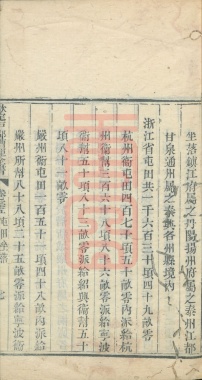 坐落鎮江府屬之丹陽揚州府屬之泰州江都
甘泉通州屬之泰興各州縣境內
浙江省屯田共一千六百三十項四十九畝零
杭州衛屯田四百七十項四十二畝零內派給杭
州衛幫三百六十八項八十六畝零派給寧波
衛幫五十項八十三畝零派給紹興衛幫五十
項八十一畝零
嚴州衛屯田一百五十一項四十八畝內派給
嚴州所幫八十八項二十五畝零派給寧波衛